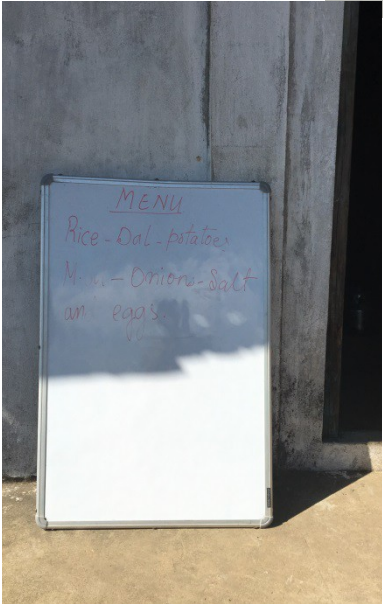 MENU
Rice - Dal - potatoes
- Onion - Salt
and eggs.